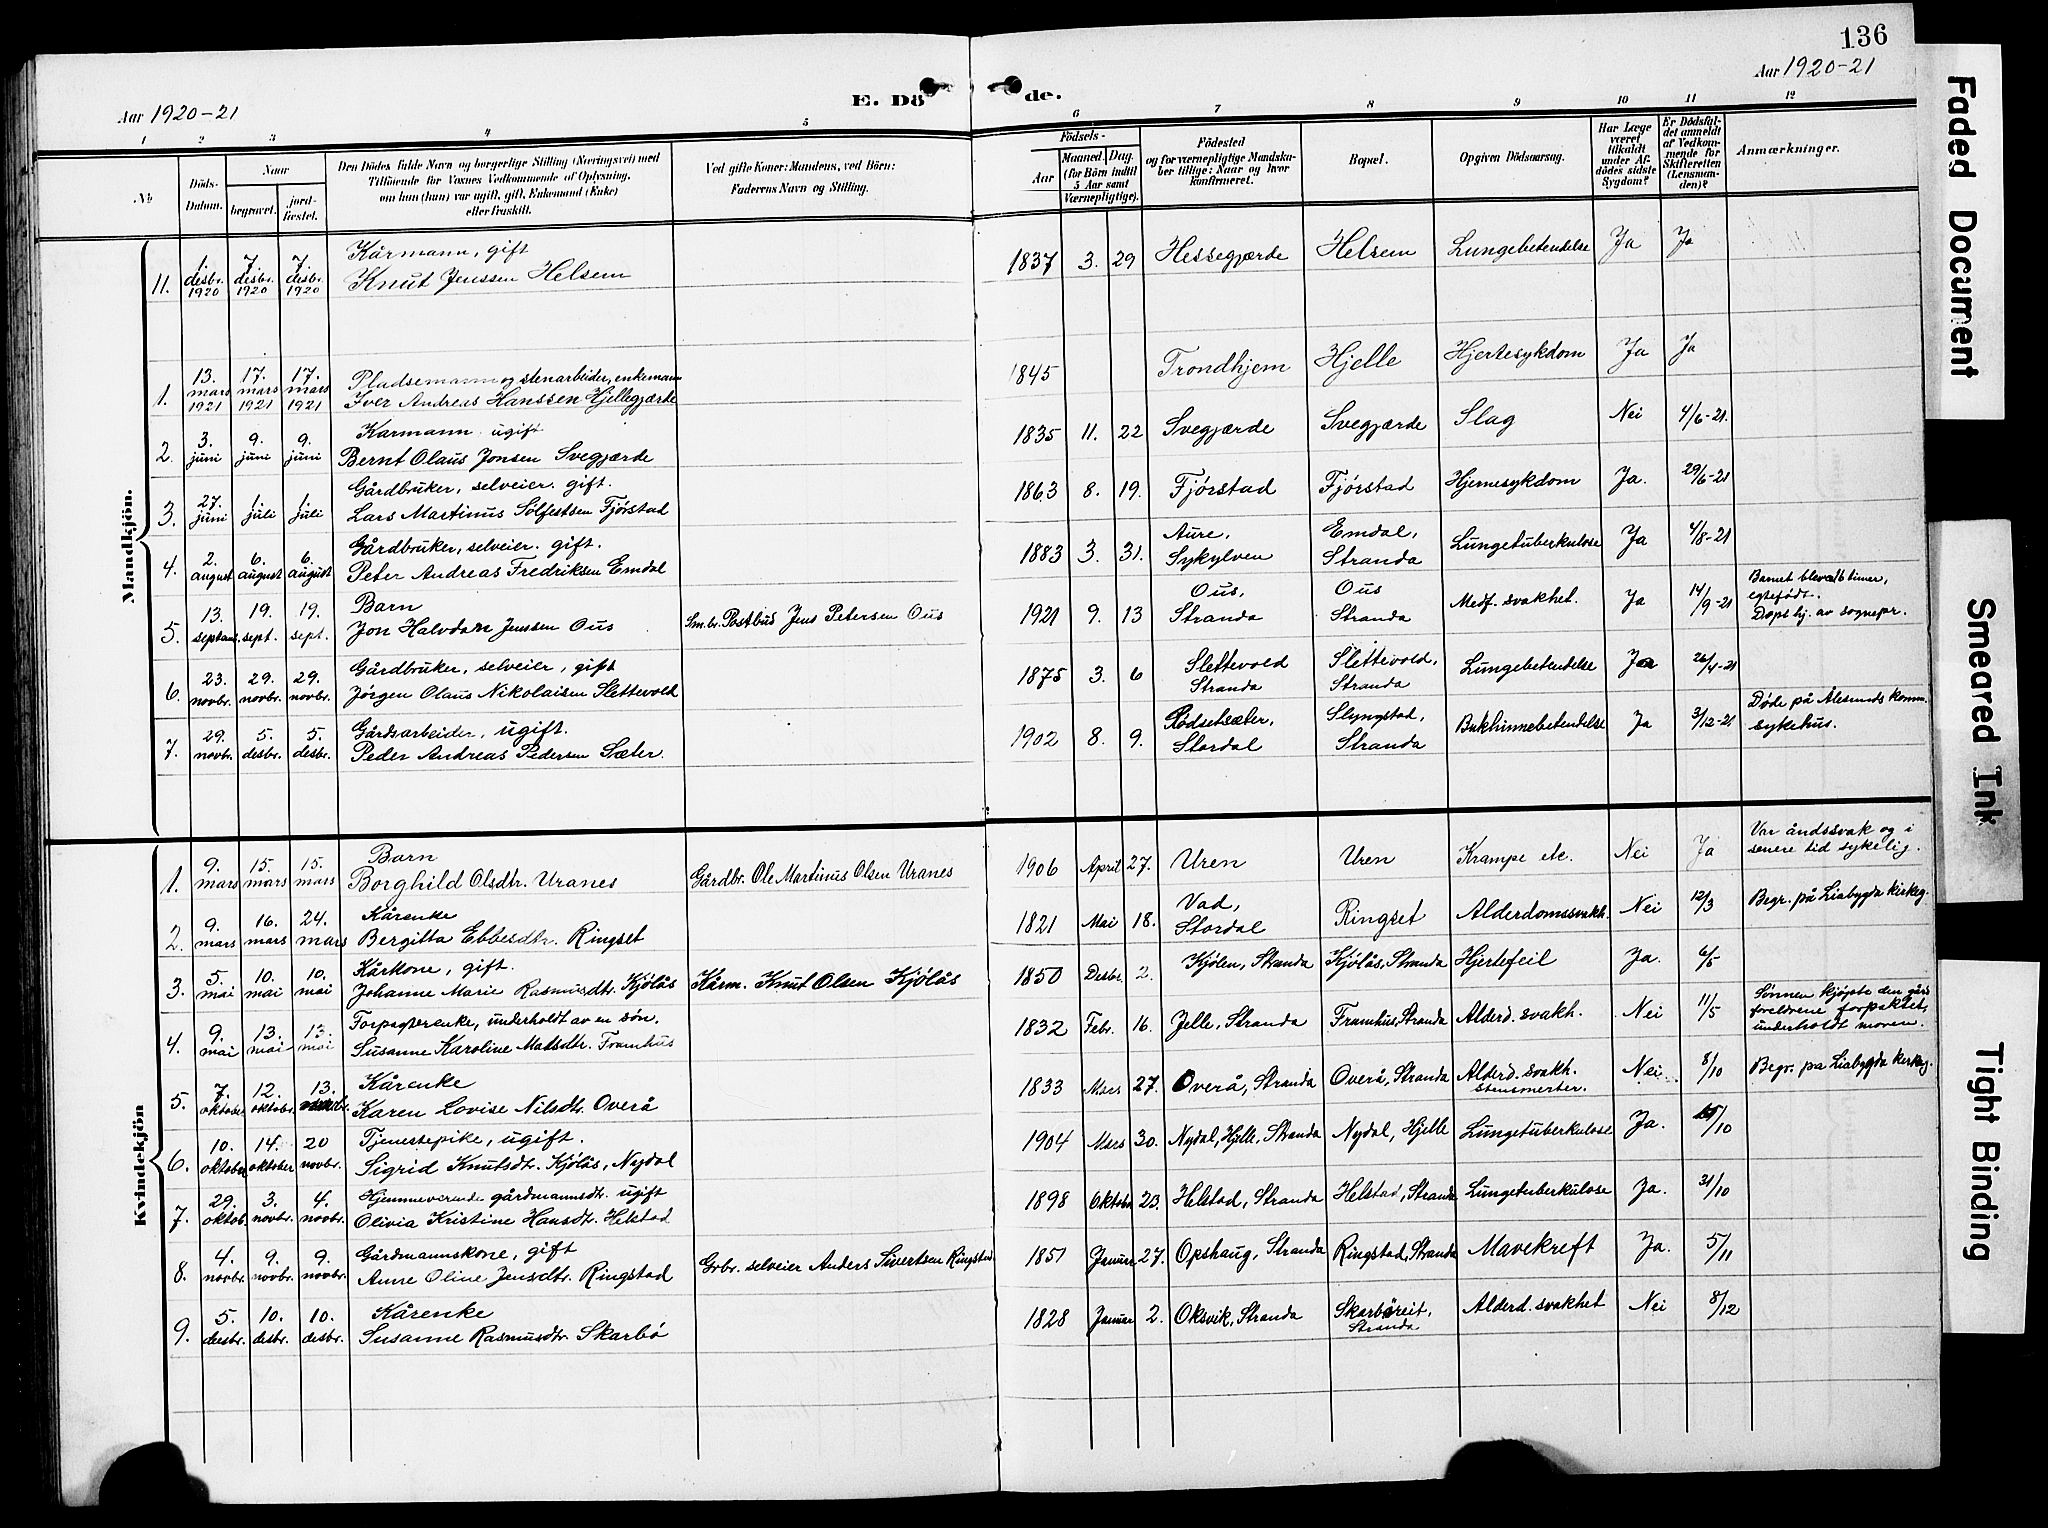 136
Aar 1920-21
Aar 1920-21
E. Dö de.
1 2 3 4 5 6 7 8 9 10 11 12
No
Döds-Datum.
Naar
begravet.
jord-fæstet.
Den Dödes fulde Navn og borgerlige Stilling (Næringsvei) med
Tilföiende for Voxnes Vedkommende af Oplysning,
om han (hun) var ugift, gift, Enkemand (Enke)
eller fraskilt.
Ved gifte Koner: Mandens, ved Börn:
Faderens Navn og Stilling.
Födsels-
Aar
Maaned. Dag.
(for Börn indtil
5 Aar samt
Værnepligtige).
Födested
og for værnepligtige Mandska-
ber tillige: Naar og hvor
konfirmeret.
Bopæl.
Opgiven Dödsaarsag.
Har Læge
været
tilkaldt
under Af-
dödes sidste
Sygdom?
Er Dödsfal-
det anmeldt
af Vedkom-
mende for
Skifteretten
(Lensman-
den)?
Anmærkninger.
Mandkjön.
11. 1. desbr. 1920 7. desbr. 1920 7. desbr. 1920 Kårmann, gift
Knut Jenssen Helsem 1837 3. 29 Hessegjærde Helsem Lungebetendelse Ja Ja
1. 13. mars 1921 17. mars 1921 17. mars 1921 Pladsemann og stenarbeider, enkemann
Iver Andreas Hanssen Hjellegjærde 1845 Trondhjem Hjelle Hjertesykdom Ja Ja
2. 3. juni 9. juni 9. juni Karmann ugift
Bernt Olaus Jonsen Svegjærde 1835 11. 22 Svegjærde Svegjærde Slag Nei 4/6-21.
3. 27. juni 1 juli 1 juli Gårdbruker, selveier. gift.
Lars Martinus Sölfestsen Fjørstad 1863 8. 19. Fjørstad Fjørstad Hjernesykdom Ja. 29/6-21
4. 2. august 6. august 6. august Gårdbruker, selveier. gift.
Peter Andreas Fredriksen Emdal 1883 3. 31. Aure, Sykylven Emdal, Stranda Lungetuberkulose Ja 4/8-21
5. 13. 19. sept. 19. sept. Barn
Jon Halvdan Jenssen Ous Sm.br. Postbud Jens Petersen Ous 1921 9. 13 Ous, Stranda Ous Stranda Medf. svakhet. Ja 14/9-21 Barnet blev 16 timer,
egtefødt.
Døpt hj. av sognepr.
6. 23. novbr. 29. novbr. 29. novbr. Gårdbruker, selveier, gift
Jørgen Olaus Nikolaisen Slettevold 1875 3. 6 Slettevold Stranda Slettevold, Stranda Lungebetendelse Ja 26/4-21
7. 29. novbr. 5. desbr. 5. desbr. Gårdsarbeider, ugift.
Peder Andreas Pedersen Sæter. 1902 8. 9. Rødsetsæter, Stordal Slyngstad, Stranda Bukhinnebetendelse Ja 3/12-21 Døde på Ålesunds komm.
sykehus.
Kvindekjön
1. 9. mars 15. mars 15. mars Barn
Borghild Olsdtr. Uranes Gårdbr. Ole Martinus Olsen Uranes 1906 April 27. Uren Uren Krampe etc. Nei Ja Var åndssvak og i
senere tid sykelig.
2. 9. mars 16. mars 24. mars Kårenke
Bergitta Ebbesdtr. Ringset 1821 Mai 18. Vad, Stordal Ringset Alderdomssvakh. Nei 12/3 Begr. på Liabygda kirkeg.
3. 5. mai 10. mai 10. mai Kårkone, gift.
Johanne Marie Rasmusdtr. Kjölås Kårm. Knut Olsen Kjölås 1850 Desbr. 2. Kjølen, Stranda Kjölås, Stranda Hjertefeil Ja. 6/5
4. 9. mai 13. mai 13. mai Forpagterenke, underholdt av en søn.
Susanne Karoline Matsdtr. Framhus 1832 Febr. 16. Jelle, Stranda Framhus, Stranda Alderd. svakh. Nei 11/5 Sønnen kjøpte den gård
foreldrene forpaktet,
underholdt moren.
5. 7. oktober 12. oktobr. 13. Kårenke
Karen Lovise Nilsdtr. Overå 1833 Mars 27. Overå, Stranda Overå, Stranda Alderd. svakh.
stensmerter. Nei 8/10 Begr. på Liabygda kirkeg.
6. 10. oktober 14. oktober 20 novbr. Tjenestepike, ugift.
Sigrid Knutsdtr. Kjölås, Nydal 1904 Mars 30. Nydal, Hjelle, Stranda Nydal, Hjelle Lungetuberkulose Ja. /10
7. 29. oktob. 3. novbr. 4. novbr. Hjemmeværende gårdmannsdtr. ugift
Olivia Kristine Hansdtr. Helstad 1898 Oktobr. 23. Helstad, Stranda Helstad, Stranda Lungetuberkulose Ja. 31/10
8. 4. novbr. 9. novbr. 9. novbr. Gårdmannskone, gift
Anne Oline Jensdtr. Ringstad Grbr. selveier Anders Sivertsen Ringstad 1851 Januar 27. Opshaug, Stranda Ringstad, Stranda Mavekreft Ja. 5/11
9. 5. desbr. 10. desbr. 10. desbr. Kårenke
Susanne Rasmusdtr. Skarbø 1828 Januar 2. Oksvik, Stranda Skarbøreit, Stranda Alderd. svakhet Nei 8/12
Faded Document
Smeared Ink
Tight Binding